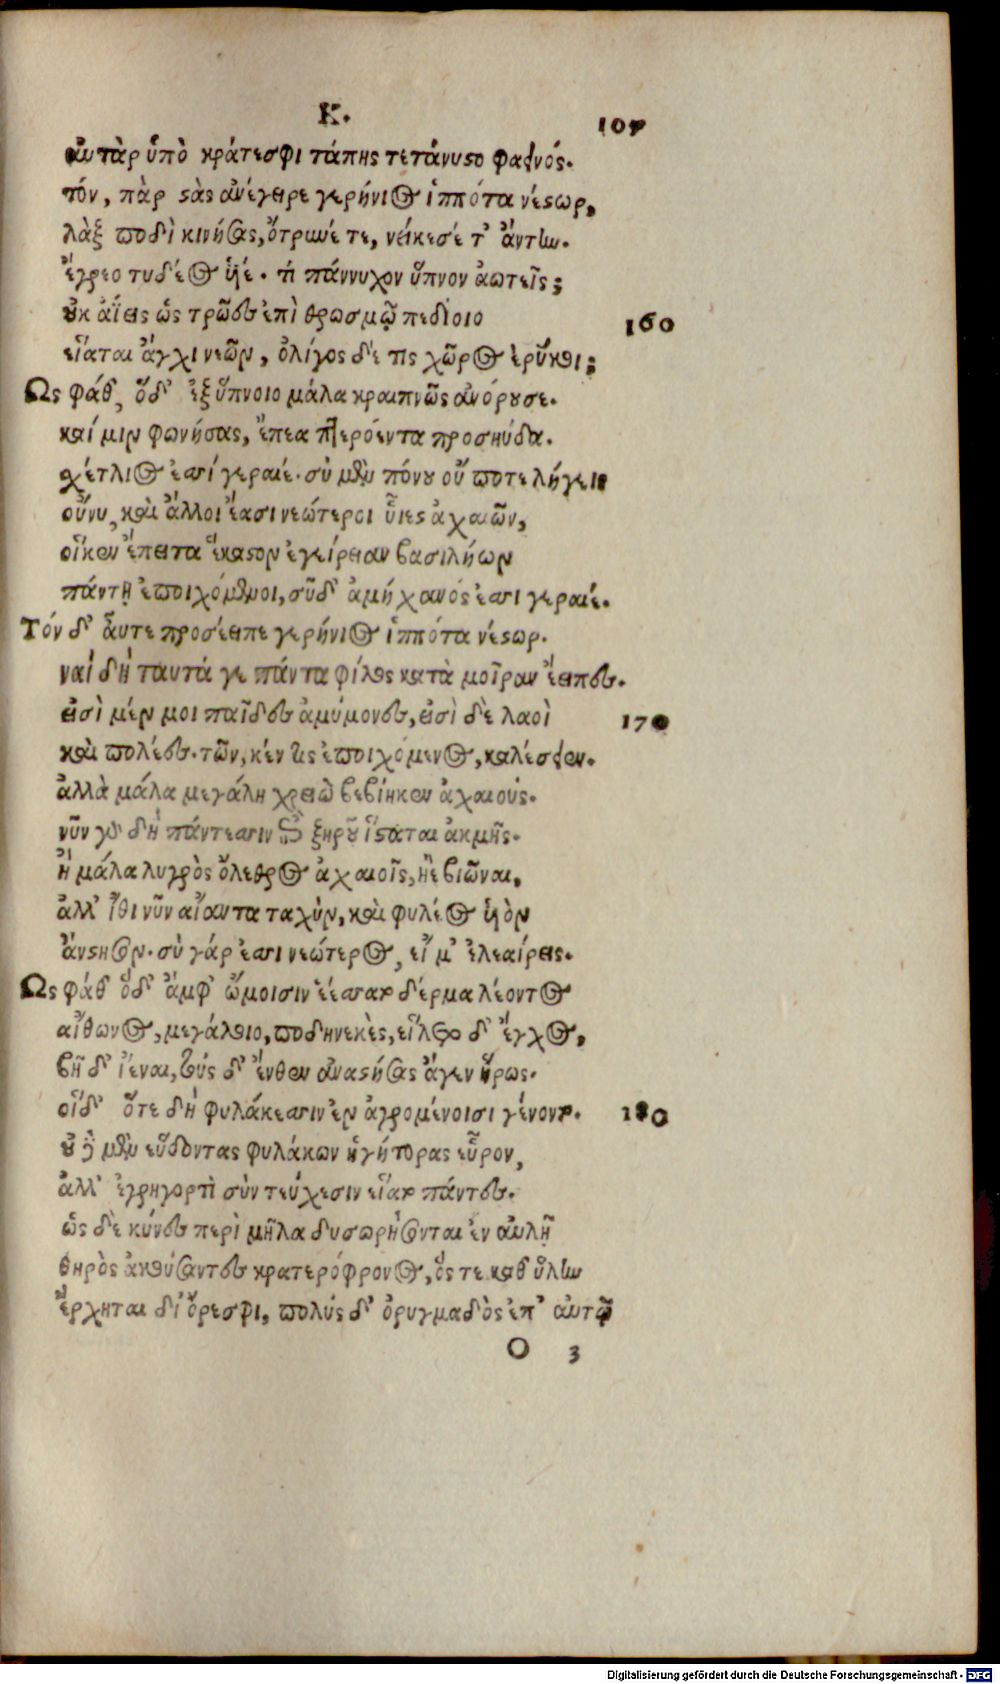 Κ. 107
αὐτὰρ ὑπὸ κράτεσφι τάπης τετάνυστο φαεινός.
τόν, πὰρ στὰς ἀνέγειρε γερήνιος ἱππότα νέστωρ,
λὰξ ποδὶ κινήσας, ὄτρυνέ τε, νείκεσέ τ' ἄντην.
ἔγρεο τυδέος ὑιέ. τί πάννυχον ὕπνον ἀωτεῖς;
οὐκ ἀΐεις ὡς τρῶες ἐπὶ θρωσμῷ πεδίοιο 160
εἵαται ἄγχι νεῶν, ὀλίγος δέ τις χῶρος ἐρύκει;
Ως φάθ', ὅδ' ἐξ ὕπνοιο μάλα κραιπνῶς ἀνόρουσε.
καί μιν φωνήσας, ἔπεα πτερόεντα προσηύδα.
σχέτλιος ἐσσί γεραιέ. σὺ μὲν πόνου οὔ ποτε λήγεις
οὔνυ, καὶ ἄλλοι ἔασι νεώτεροι ὗιες ἀχαιῶν,
οἵκεν ἔπειτα ἕκαστον ἐγείρειαν βασιλήων
πάντῃ ἐποιχόμενοι, σῦδ' ἀμήχανός ἐσσι γεραιέ.
Τόν δ' αὖτε προσέειπε γερήνιος ἱππότα νέστωρ.
ναί δὴ ταυτά γε πάντα φίλος κατὰ μοῖραν ἔειπες.
εἰσὶ μέν μοι παῖδες ἀμύμονες, εἰσὶ δὲ λαοὶ 170
καὶ πολέες. τῶν, κέν τις ἐποιχόμενος, καλέσειεν.
ἀλλὰ μάλα μεγάλη χρειὼ βεβίηκεν ἀχαιούς.
νῦν γὰρ δὴ πάντεσσιν ἐπὶ ξηροῦ ἵσταται ἀκμῆς.
ἢ μάλα λυγρὸς ὄλεθρος ἀχαιοῖς, ἠὲ βιῶναι.
ἀλλ' ἴθι νῦν αἴαντα ταχὺν, καὶ φυλέος ὑιὸν
ἄνστησον. σὺ γάρ ἐσσι νεώτερος, εἴ μ' ἐλεαίρεις.
Ως φάθ' ὅδ' ἀμφ' ὤμοισιν ἑέσσατο δέρμα λέοντος
αἴθωνος, μεγάλοιο, ποδηνεκὲς, εἵλετο δ' ἔγχος,
βῆ δ' ἴεναι, τοὺς δ' ἔνθεν ἀναστήσας ἄγεν ἥρως.
οἵδ' ὅτε δὴ φυλάκεσσιν ἐν ἀγρομένοισι γένοντο. 180
οὐδὲ μὲν εὕδοντας φυλάκων ἡγήτορας εὗρον,
ἀλλ' ἐγρηγορτὶ σὺν τεύχεσιν εἵατο πάντες.
ὡς δὲ κύνες περὶ μῆλα δυσωρήσονται ἐν αὐλῇ
θηρὸς ἀκούσαντες κρατερόφρονος, ὅς τε καθ' ὕλην
ἔρχηται δι' ὄρεσφι, πολύς δ' ὀρυγμαδὸς ἐπ' αὐτῷ
O 3
Digitalisierung gefördert durch die Deutsche Forschungsgemeinschaft - DFG